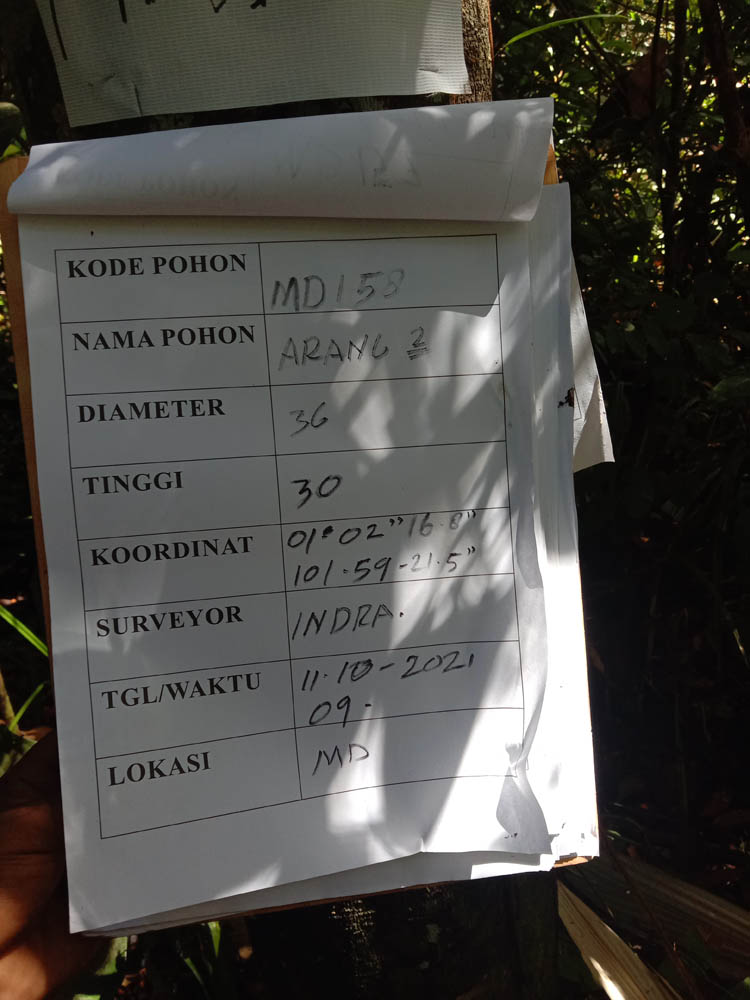 KODE POHON MD158
NAMA POHON ARANG 2
DIAMETER 36
TINGGI 30
KOORDINAT 01° 02" 16.8"
101.59-21.5"
SURVEYOR INDRA.
TGL/WAKTU 11.10-2021
09-
LOKASI MD